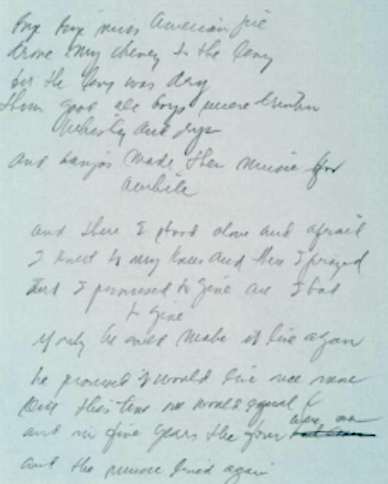 Bye Bye miss American pie
drove my chevy to the levy
but the levy was dry
them good ole boys were drinkin
Whiskey and rye
and banjos made their music for
awhile
and there I stood alone and afraid
I knelt to my knees and there I prayed
and I promised to give all I had
to give
if only he would make it live again
he promised it would live once more
but this time one would equal 4
and in five years the four were now
and the music lived again